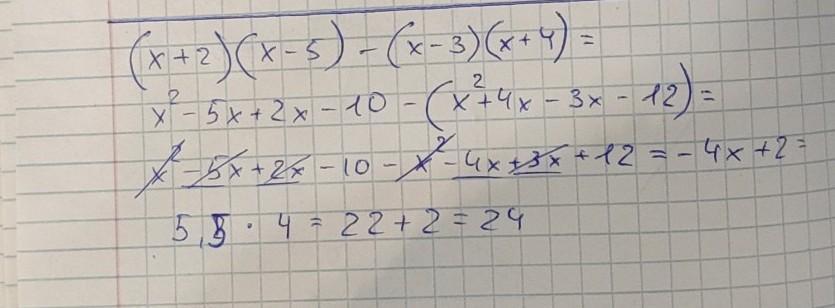 (x+2)(x-5)-(x-3)(x+4)=
x²-5x+2x-10-(x²+4x-3x-12)=
x²-5x+2x-10-x²-4x+3x+12=-4x+2=
5,5·4=22+2=24